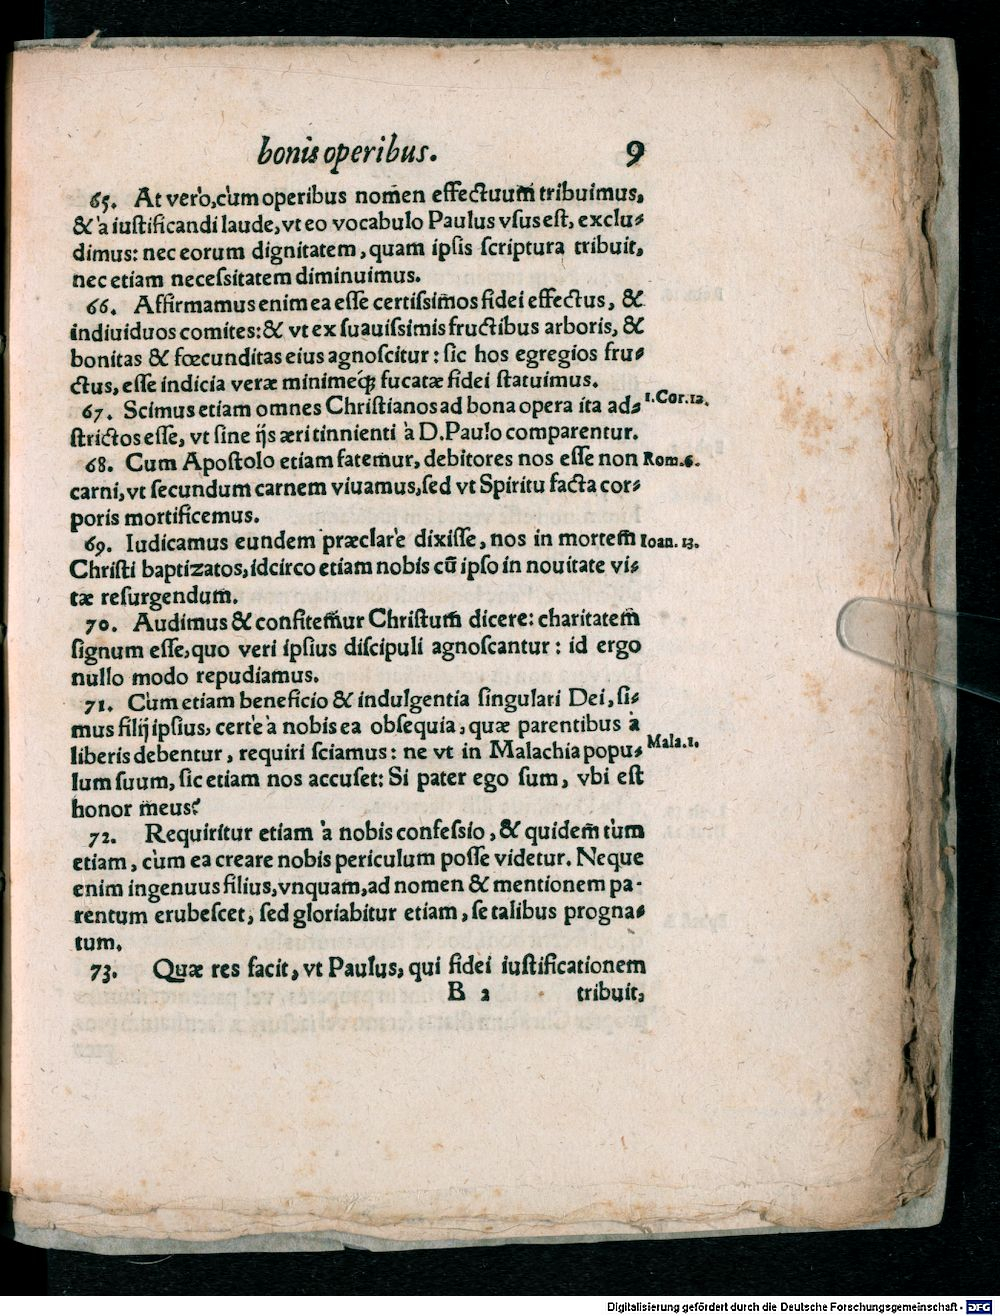 bonis operibus. 9
65. At verò, cùm operibus nomen effectuum tribuimus,
& à iustificandi laude, vt eo vocabulo Paulus vsus est, exclu-
dimus: nec eorum dignitatem, quam ipsis scriptura tribuit,
nec etiam necessitatem diminuimus.
66. Affirmamus enim ea esse certissimos fidei effectus, &
indiuiduos comites: & vt ex suauissimis fructibus arboris, &
bonitas & fœcunditas eius agnoscitur: sic hos egregios fru-
ctus, esse indicia veræ minimeq́; fucatæ fidei statuimus.
67. Scimus etiam omnes Christianos ad bona opera ita ad- 1.Cor.12.
strictos esse, vt sine ijs æri tinnienti à D. Paulo comparentur.
68. Cum Apostolo etiam fatemur, debitores nos esse non Rom.6.
carni, vt secundum carnem viuamus, sed vt Spiritu facta cor-
poris mortificemus.
69. Iudicamus eundem præclarè dixisse, nos in mortem Ioan. 13.
Christi baptizatos, idcirco etiam nobis cũ ipso in nouitate vi-
tæ resurgendum.
70. Audimus & confitemur Christum dicere: charitatem
signum esse, quo veri ipsius discipuli agnoscantur: id ergo
nullo modo repudiamus.
71. Cùm etiam beneficio & indulgentia singulari Dei, si-
mus filij ipsius, certè à nobis ea obsequia, quæ parentibus à
liberis debentur, requiri sciamus: ne vt in Malachia popu- Mala.1.
lum suum, sic etiam nos accuset: Si pater ego sum, vbi est
honor meus?
72. Requiritur etiam à nobis confessio, & quidem tùm
etiam, cùm ea creare nobis periculum posse videtur. Neque
enim ingenuus filius, vnquam, ad nomen & mentionem pa-
rentum erubescet, sed gloriabitur etiam, se talibus progna-
tum.
73. Quæ res facit, vt Paulus, qui fidei iustificationem
B 2 tribuit,
Digitalisierung gefördert durch die Deutsche Forschungsgemeinschaft - DFG